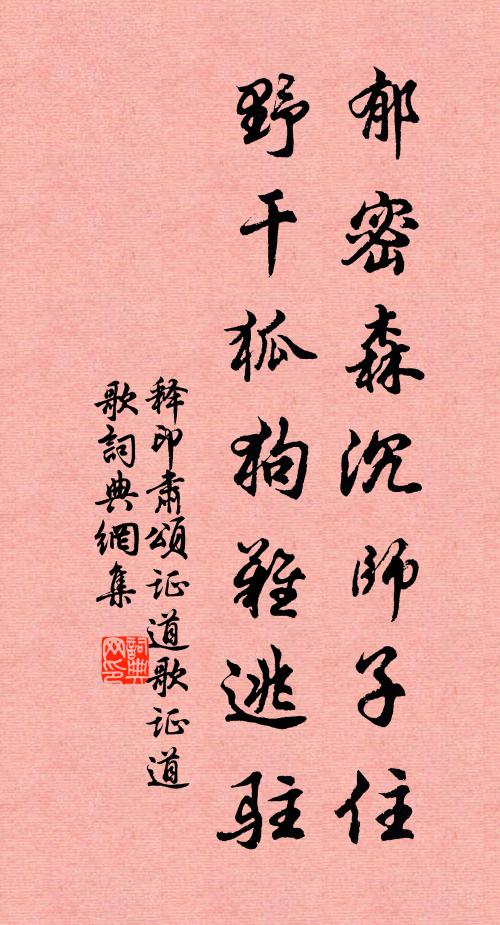 郁密森沉师子住
野干狐狗难逃驻
释印肃颂证道歌证道
歌词典网集
词典网印